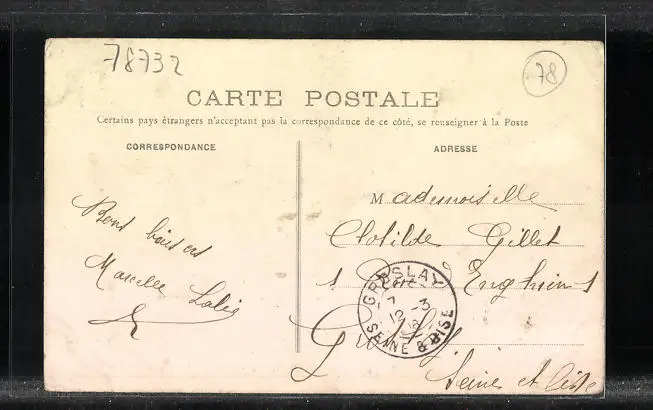 78732
78
CARTE POSTALE
Certains pays étrangers n'acceptant pas la correspondance de ce côté, se renseigner à la Poste
CORRESPONDANCE
ADRESSE
Bons baisers
Marcelle
Mademoiselle
Clotilde Gillet
Enghien
GRESLAY
7 -3
12
SEINE & OISE
Seine et Oise